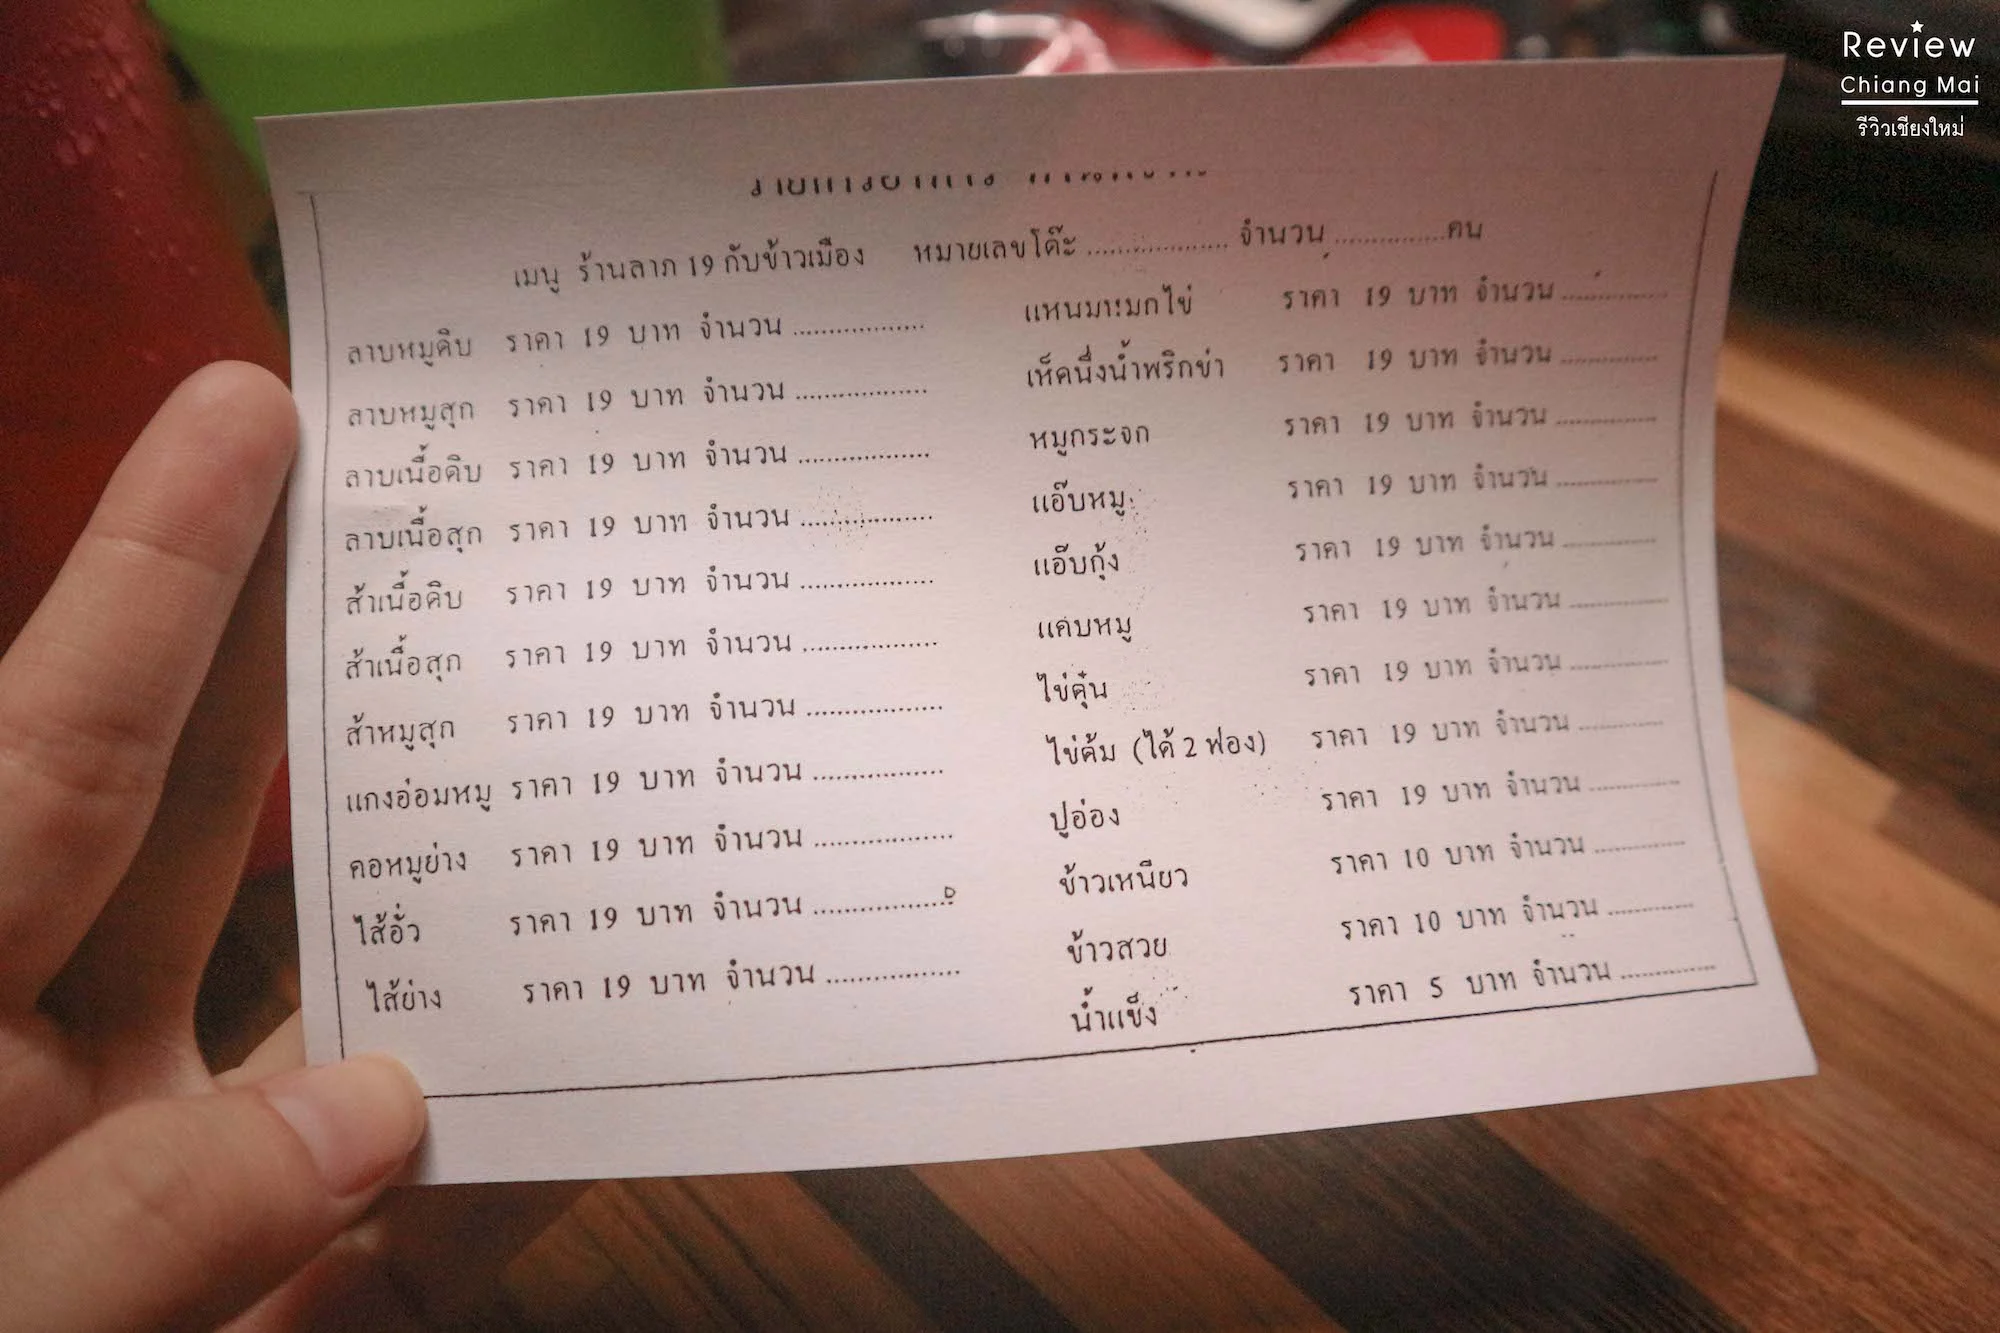 Review
Chiang Mai
รีวิวเชียงใหม่
เมนู ร้านลาภ 19 กับข้าวเมือง หมายเลขโต๊ะ .................... จำนวน ...............คน
ลาบหมูดิบ ราคา 19 บาท จำนวน ...................
ลาบหมูสุก ราคา 19 บาท จำนวน ...................
ลาบเนื้อดิบ ราคา 19 บาท จำนวน ...................
ลาบเนื้อสุก ราคา 19 บาท จำนวน ...................
ส้าเนื้อดิบ ราคา 19 บาท จำนวน ...................
ส้าเนื้อสุก ราคา 19 บาท จำนวน ...................
ส้าหมูสุก ราคา 19 บาท จำนวน ...................
แกงอ่อมหมู ราคา 19 บาท จำนวน ...................
คอหมูย่าง ราคา 19 บาท จำนวน ...................
ไส้อั่ว ราคา 19 บาท จำนวน ...................
ไส้ย่าง ราคา 19 บาท จำนวน ...................
แหนมหมกไข่ ราคา 19 บาท จำนวน ...............
เห็ดนึ่งน้ำพริกข่า ราคา 19 บาท จำนวน ..............
หมูกระจก ราคา 19 บาท จำนวน ..............
แอ๊บหมู ราคา 19 บาท จำนวน ..............
แอ๊บกุ้ง ราคา 19 บาท จำนวน ..............
แคบหมู ราคา 19 บาท จำนวน ..............
ไข่ตุ๋น ราคา 19 บาท จำนวน ..............
ไข่ต้ม (ได้ 2 ฟอง) ราคา 19 บาท จำนวน ..............
ปูอ่อง ราคา 19 บาท จำนวน ..............
ข้าวเหนียว ราคา 10 บาท จำนวน ..............
ข้าวสวย ราคา 10 บาท จำนวน ..............
น้ำแข็ง ราคา 5 บาท จำนวน ..............